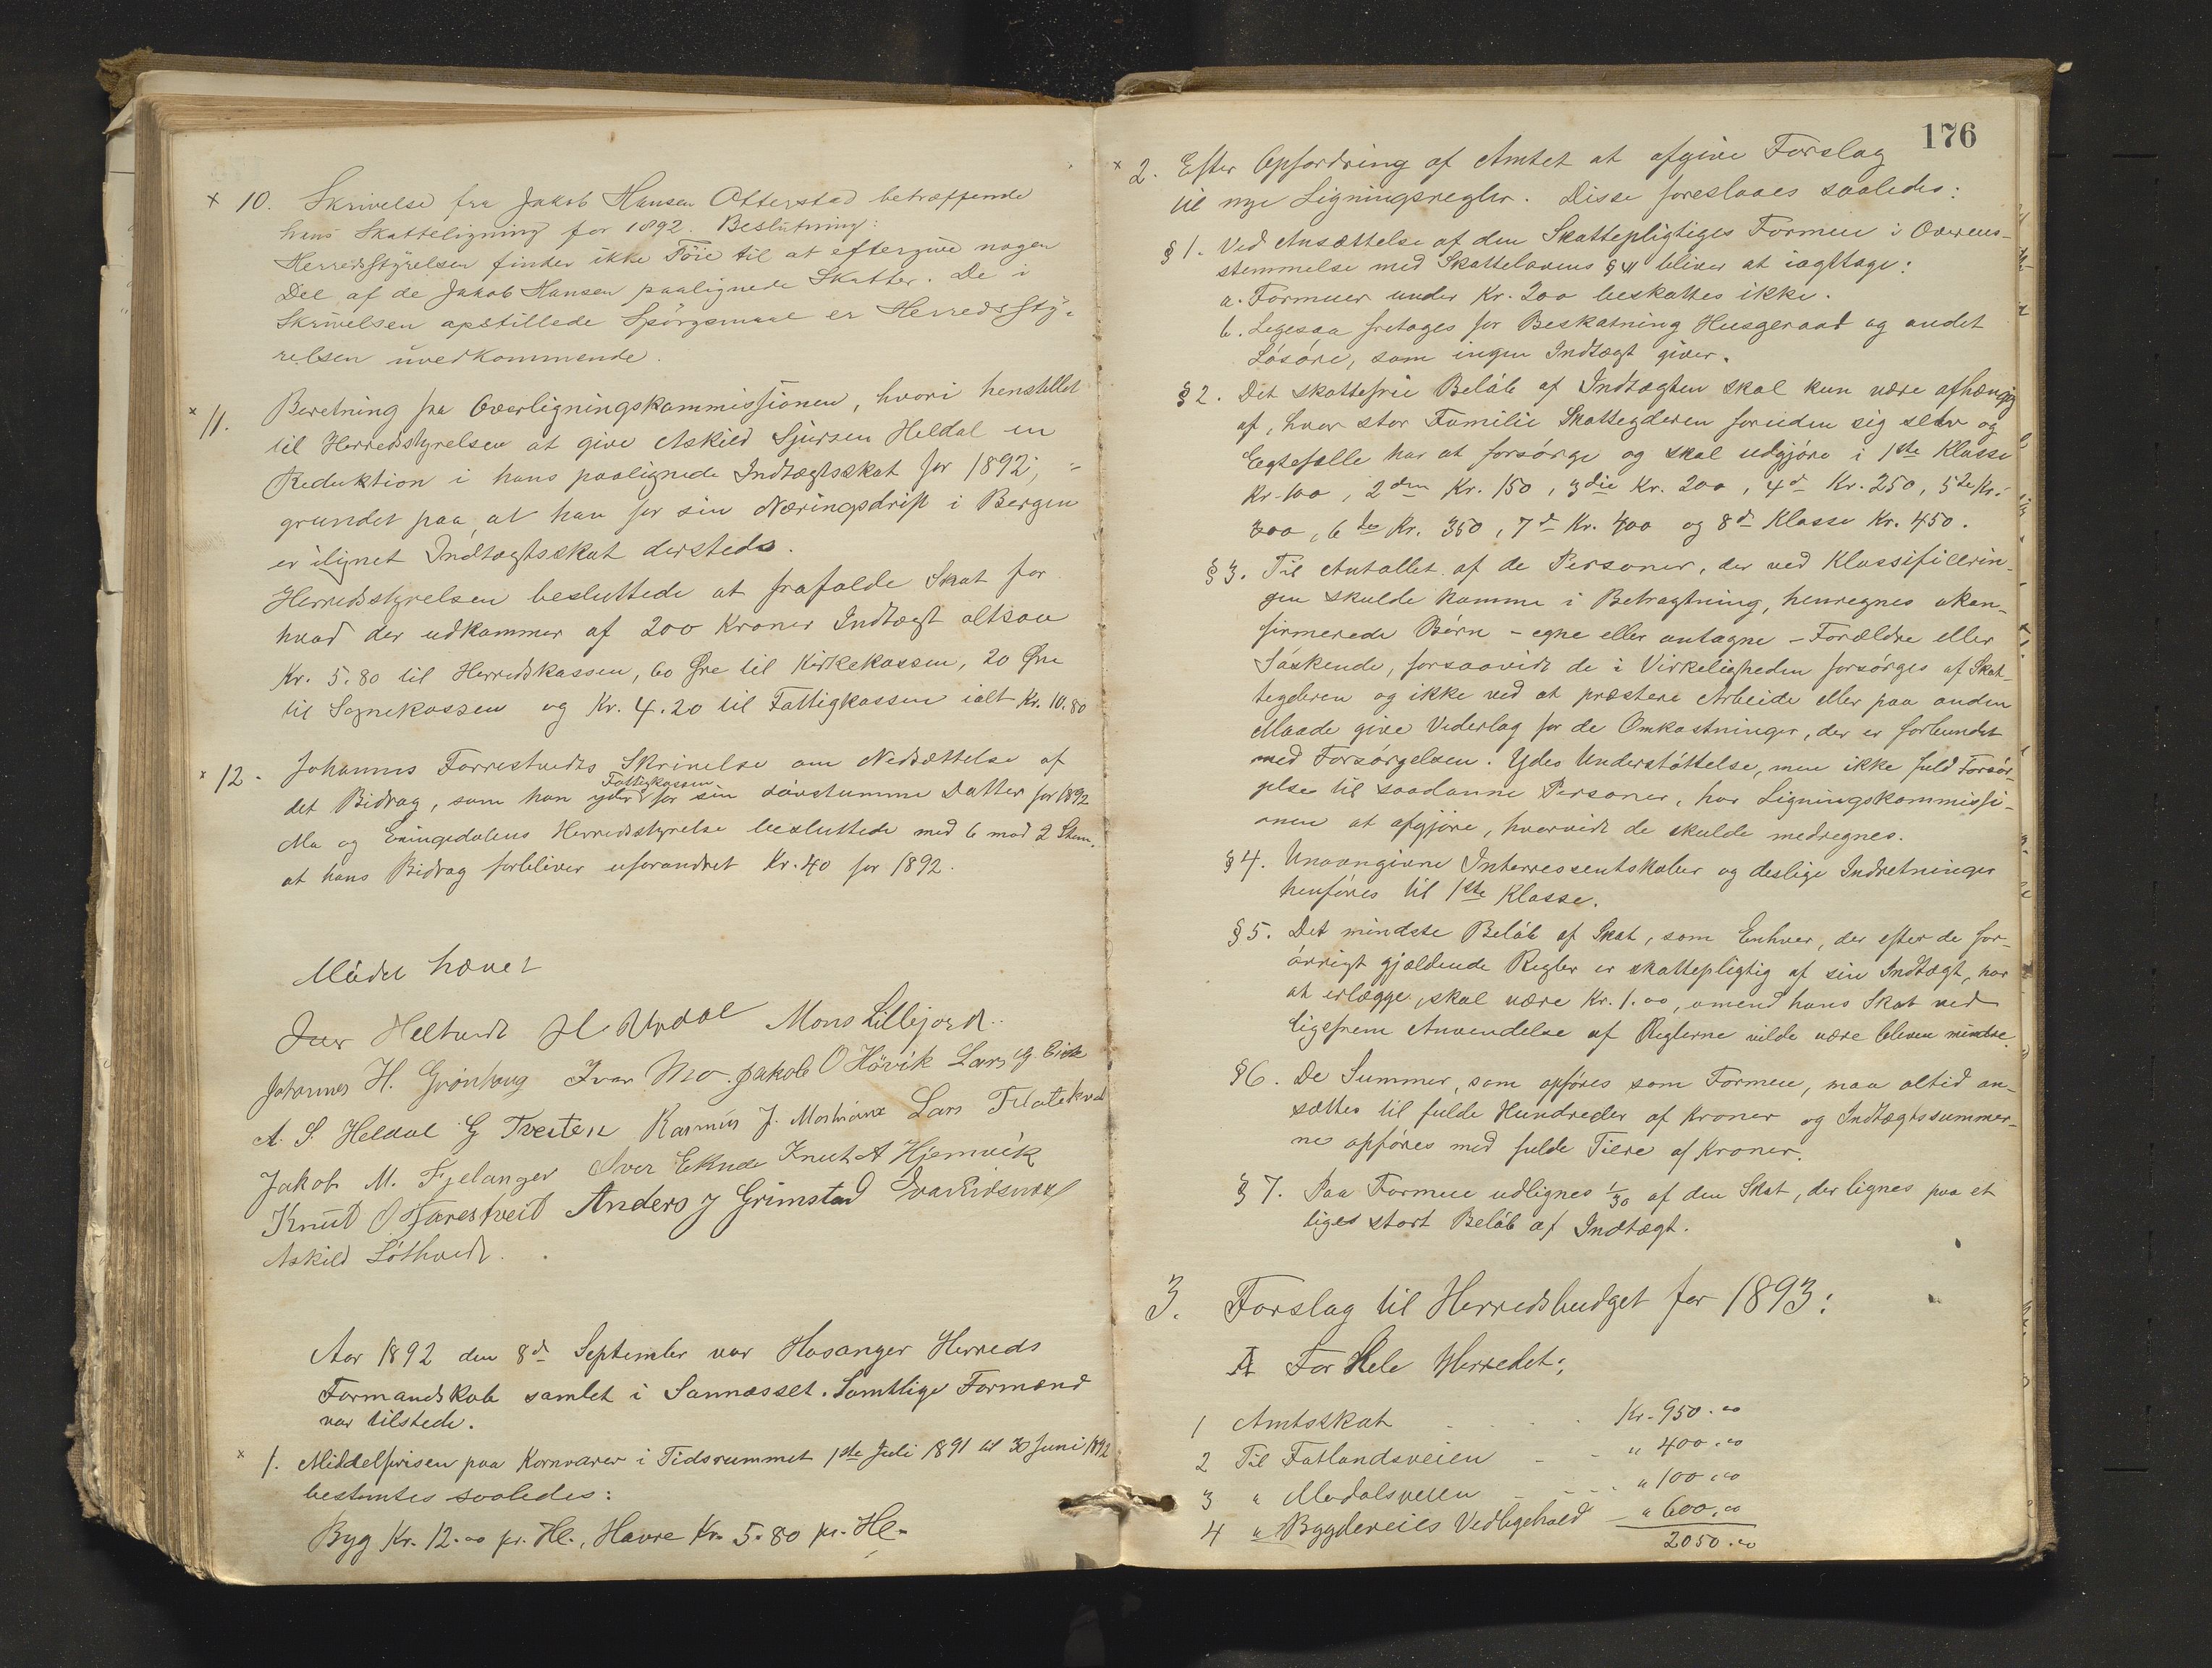 x 10. Skrivelse fra Jakob Hansen Otterstad betræffende
hans Skatteligning for 1892. Beslutning:
Herredsstyrelsen finder ikke Föie til at eftergive nogen
Del af de Jakob Hansen paalignede Skatter. De i
Skrivelsen opstillede Spörgsmaal er Herredssty-
relsen uvedkommende.
x 11. Beretning fra Overligningskommissionen, hvori henstillet
til Herredsstyrelsen at give Askild Sjursen Heldal en
Reduktion i hans paalignede Indtægtsskat for 1892,
grundet paa at han for sin Næringsdrift i Bergen
er ilignet Indtægtsskat dersteds.
Herredsstyrelsen besluttede at frafalde Skat for
hvad der udkommer af 200 Kroner Indtægt altsaa
Kr. 5.80 til Herredskassen, 60 Øre til Kirkekassen, 20 Øre
til Sognekassen og Kr. 4.20 til Fattigkassen ialt Kr. 10.80
x 12. Johannes Farrestvedts Skrivelse om Nedsættelse af
det Bidrag, som han yder Fattigkassen for sin dövstumme Datter for 1892
Mo og Exingedalens Herredsstyrelse besluttede med 6 mod 2 Stem.
at hans Bidrag forbliver uforandret Kr. 40 for 1892.
Mödet hævet
Iver Heltvedt H. Urdal Mons Lillejord
Johannes H. Grönhaug Ivar Mo Jakob O Hövik Lars G. Eide
A. S. Heldal G Tveiten Rasmus J. Lars Flatekval
Jakob M. Fjelanger Iver Eknes Knut A Hjemvik
Knut O Farestveit Anders J Grimstad
Askild Löthvedt.
Aar 1892 den 8d September var Hosanger Herreds
Formandskab samlet i Sannæsset. Samtlige Formænd
var tilstede.
x 1. Middelprisen paa Kornvarer i Tidsrummet 1ste Juli 1891 til 30 Juni 1892
bestemtes saaledes:
Byg Kr. 12.00 pr. Hl., Havre Kr. 5.80 pr. Hl.
176
x 2. Efter Opfordring af Amtet at afgive Forslag
til nye Ligningsregler. Disse foreslaaes saaledes:
§ 1. Ved Ansættelse af den Skattepligtiges Formue i Overens-
stemmelse med Skattelovens § 41 bliver at iagttage:
a. Formuer under Kr. 200 beskattes ikke.
b. Ligesaa fretages for Beskatning Husgeraad og andet
Lösöre, som ingen Indtægt giver.
§ 2. Det skattefrie Belöb af Indtægten skal kun være afhængig
af, hvor stor Familie Skatteyderen foruden sig selv og
Egtefælle har at forsörge og skal udgjöre i 1ste Klasse
Kr. 100, 2den Kr. 150, 3die Kr. 200, 4d Kr. 250, 5te Kr.
300, 6te Kr. 350, 7d Kr. 400 og 8d Klasse Kr. 450.
§ 3. Til Antallet af de Personer, der ved Klassificerin-
gen skulde komme i Betragtning, henregnes ukon-
firmerede Börn - egne eller antagne - Forældre eller
Söskende, forsaavidt de i Virkeligheden forsörges af Skat-
teyderen og ikke ved at præstere Arbeide eller paa anden
Maade give Vederlag for de Omkostninger, der er forbundet
med Forsörgelsen. Ydes Understöttelse, men ikke fuld Forsör-
gelse til saadanne Personer, har Ligningskommissi-
onen at afgjöre, hvorvidt de skulde medregnes.
§ 4. Unavngivne Interressentskaber og deslige Indretninger
henföres til 1ste Klasse.
§ 5. Det mindste Belöb af Skat, som Enhver, der efter de for-
övrigt gjældende Regler er skattepligtig af sin Indtægt, har
at erlægge, skal være Kr. 1.00, omend hans Skat ved
ligefrem Anvendelse af Reglerne vilde være bleven mindre.
§ 6. De Summer, som opföres som Formue, maa altid an-
sættes til fulde Hundreder af Kroner og Indtægtssummer-
ne opföres med fulde Tiere af Kroner.
§ 7. Paa Formue udlignes 1/30 af den Skat, der lignes paa et
liges stort Belöb af Indtægt.
3. Forslag til Herredsbudget for 1893:
A For Hele Herredet:
1 Amtsskat Kr. 950.00
2 Til Fatlandsveien - - " 400.00
3 " Modalsveien - - " 100.00
4 " Bygdeveies Vedligehold - " 600.00
2050.00